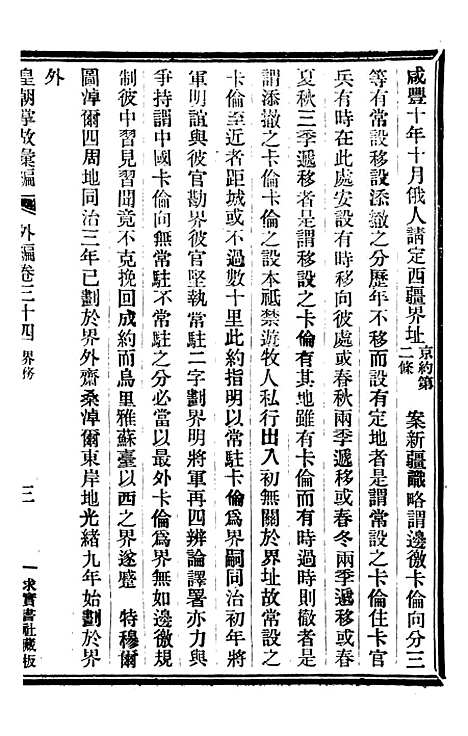 咸豐十年十月俄人請定西疆界址京約第二條　案新疆識略謂邊徼卡倫向分三
等有常設移設添撤之分歷年不移而設有定地者是謂常設之卡倫住卡官
兵有時在此處安設有時移向彼處或春秋兩季遞移或春冬兩季遞移或春
夏秋三季遞移者是謂移設之卡倫有其地雖有卡倫而有時過時則撤者是
謂添撤之卡倫卡倫之設本祇禁遊牧人私行出入初無關於界址故常設之
卡倫至近者距城或不過數十里此約指明以常駐卡倫爲界嗣同治初年將
軍明誼與彼官勘界彼官堅執常駐二字劃界明將軍再四辨論譯署亦力與
爭持謂中國卡倫向無常駐不常駐之分必當以最外卡倫爲界無如邊徼規
制彼中習見習聞竟不克挽回成約而烏里雅蘇臺以西之界遂蹙　特穆爾
圖淖爾四周地同治三年已劃於界外齋桑淖爾東岸地光緒九年始劃於界
外
皇朝掌故彙編　外編卷三十四　界務　三　求實書社藏板